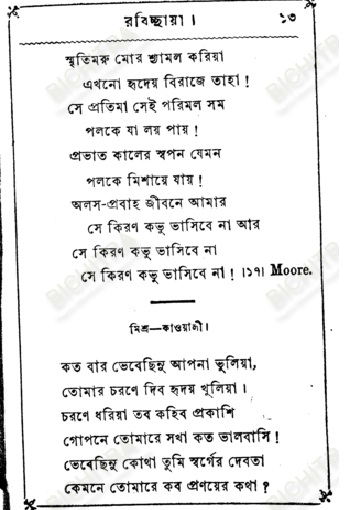 রবিচ্ছায়া । ১৩
স্মৃতিমরু মোর শ্যামল করিয়া
এখনো হৃদয়ে বিরাজে তাহা !
সে প্রতিমা সেই পরিমল সম
পলকে যা লয় পায় !
প্রভাত কালের স্বপন যেমন
পলকে মিশায়ে যায় !
অলস-প্রবাহ জীবনে আমার
সে কিরণ কভু ভাসিবে না আর
সে কিরণ কভু ভাসিবে না
সে কিরণ কভু ভাসিবে না ! ।১৭। Moore.
মিশ্র—কাওয়ালী ।
কত বার ভেবেছিনু আপনা ভুলিয়া,
তোমার চরণে দিব হৃদয় খুলিয়া ।
চরণে ধরিয়া তব কহিব প্রকাশি
গোপনে তোমারে সখা কত ভালবাসি !
ভেবেছিনু কোথা তুমি স্বর্গের দেবতা
কেমনে তোমারে কব প্রণয়ের কথা ?
BICHITRA